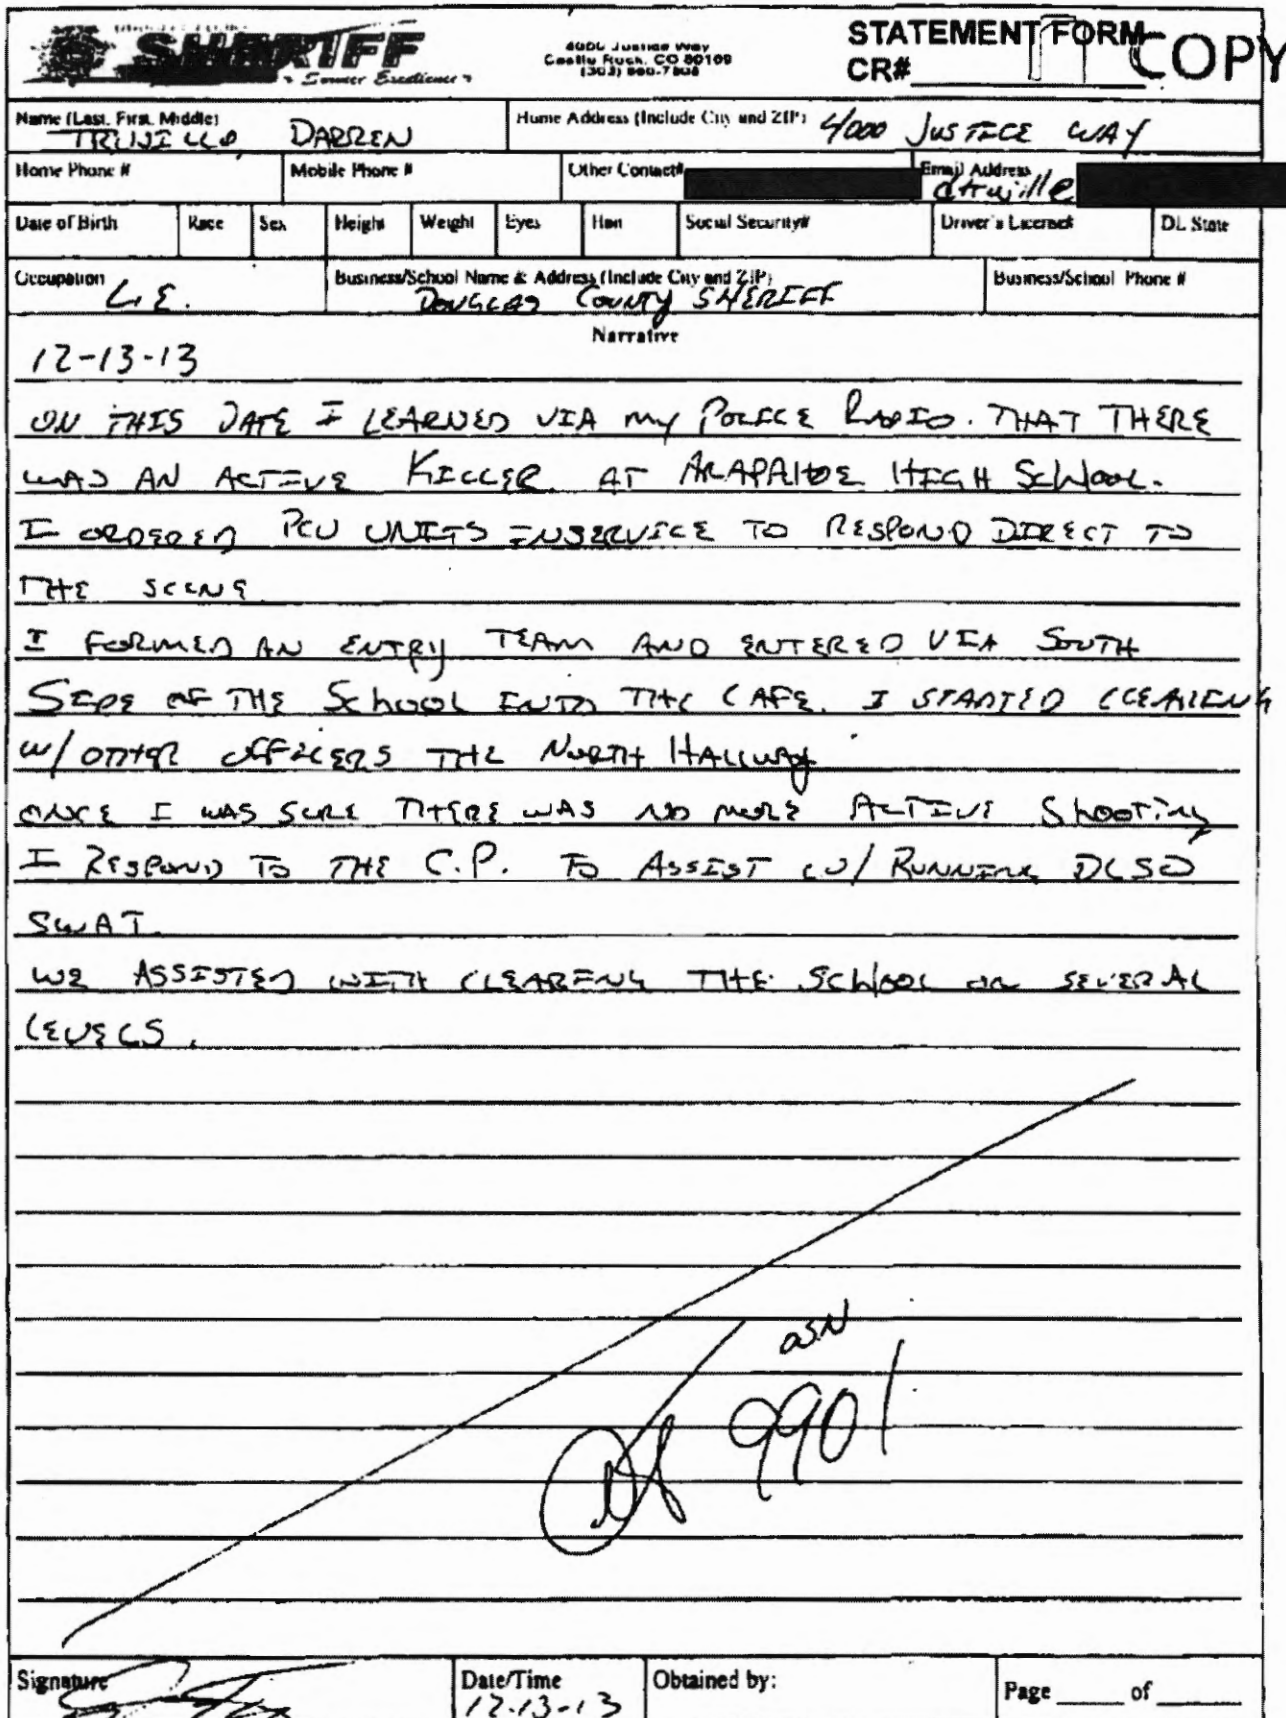 SHERIFF
4000 Justice Way
Castle Rock, CO 80109
STATEMENT FORM
CR#
COPY
Name (Last, First, Middle)
TRUJILLO, DARREN
Home Address (Include City and ZIP) 4000 JUSTICE WAY
Home Phone # Mobile Phone # Other Contact# Email Address
dtrujille
Date of Birth Race Sex Height Weight Eyes Hair Social Security# Driver's License# DL State
Occupation
L.E.
Business/School Name & Address (Include City and ZIP)
DOUGLAS COUNTY SHERIFF
Business/School Phone #
Narrative
12-13-13
ON THIS DATE I LEARNED VIA MY POLICE RADIO. THAT THERE
WAS AN ACTIVE KILLER AT ARAPAHOE HIGH SCHOOL.
I ORDERED PCU UNITS INSERVICE TO RESPOND DIRECT TO
THE SCENE
I FORMED AN ENTRY TEAM AND ENTERED VIA SOUTH
SIDE OF THE SCHOOL INTO THE CAFE. I STARTED CLEARING
W/ OTHER OFFICERS THE NORTH HALLWAY
ONCE I WAS SURE THERE WAS NO MORE ACTIVE SHOOTING
I RESPOND TO THE C.P. TO ASSIST W/ RUNNING DCSO
SWAT.
WE ASSISTED WITH CLEARING THE SCHOOL ON SEVERAL
LEVELS.
DSN
9901
Signature
Date/Time
12-13-13
Obtained by:
Page ____ of ____